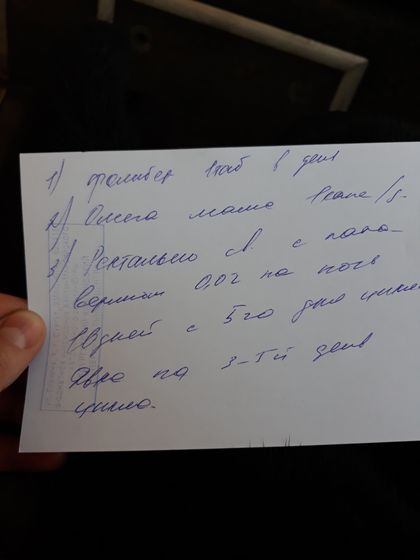 1) Фолибер 1таб в день
2) Омега мама 1капс/д.
3) Ректально св. с папа-
верином 0,02 на ночь
10дней с 5го дня цикла
Явка на 3-5й день
цикла.